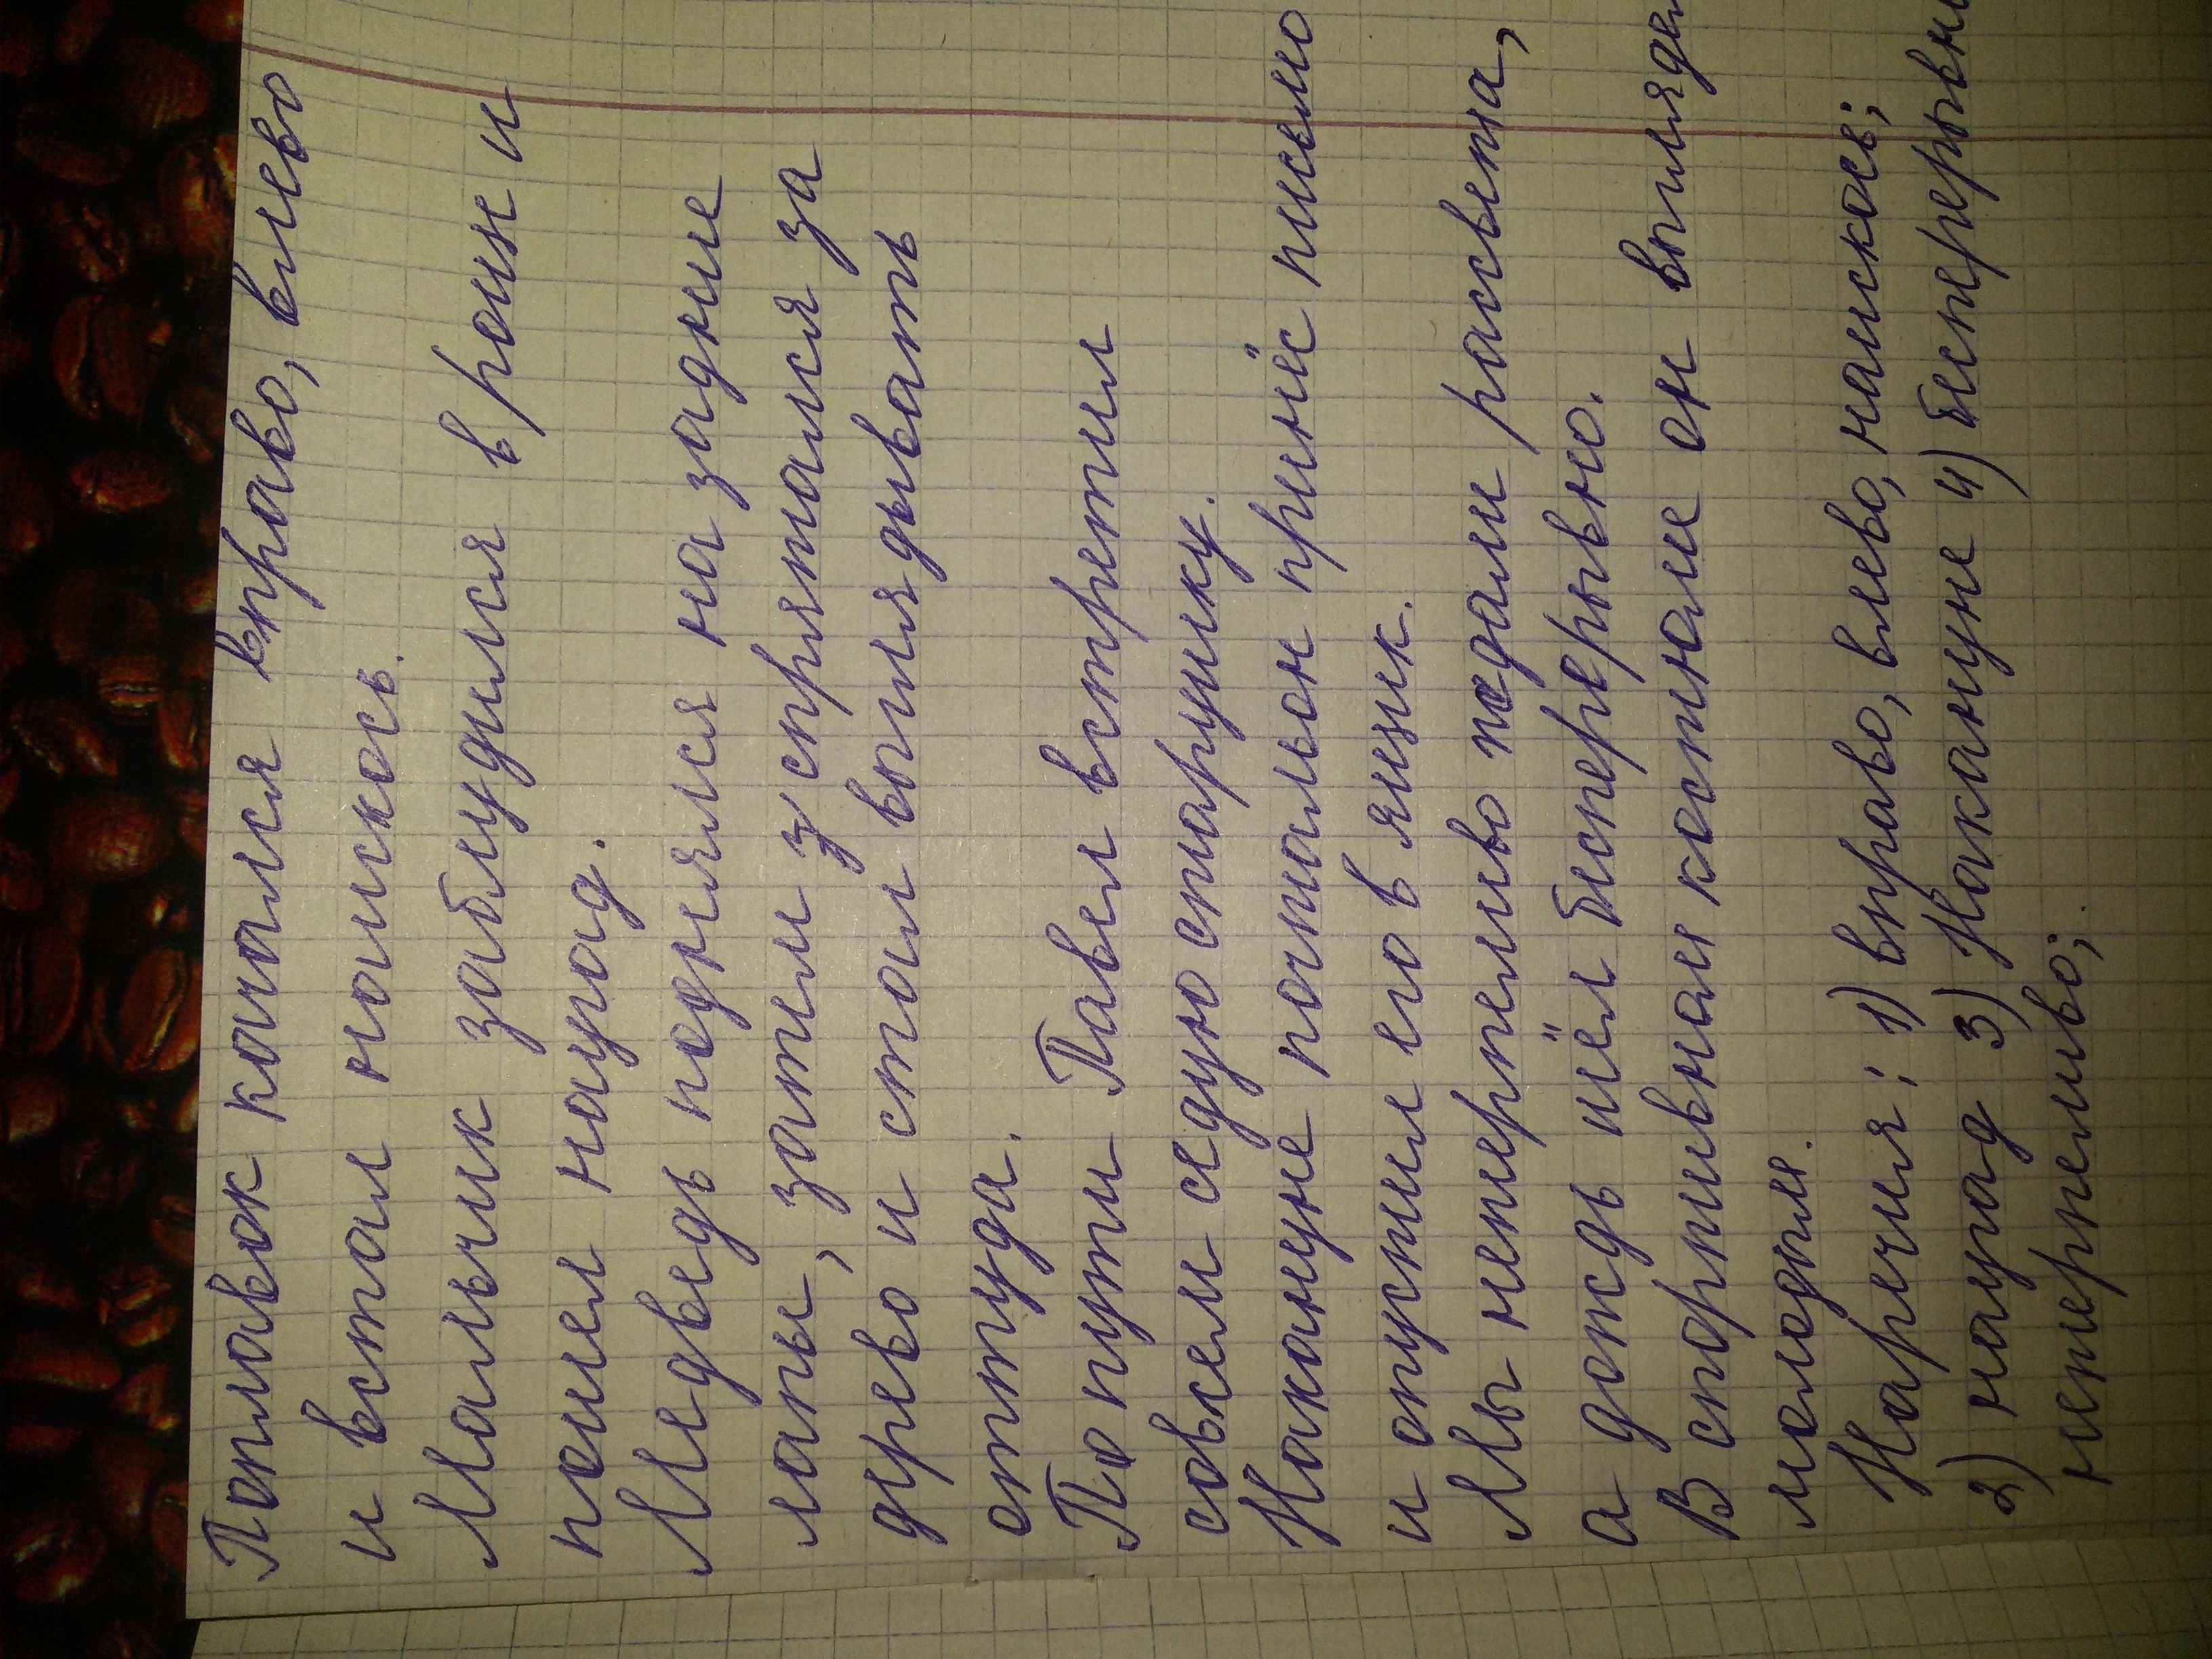 Поплавок качался вправо, влево
и встал наискось.
Мальчик заблудился в роще и
пошел назад.
Медведь поднялся на задние
лапы, затем спрятался за
дерево и стал выглядывать
оттуда.
По пути Павел встретил
совсем седую старушку.
Накануне почтальон принёс письмо
и опустил его в ящик.
Мы нетерпеливо ждали рассвета,
а дождь шёл беспрерывно.
В спортивном костюме он выгляде
молодым.
Наречия: 1) вправо, влево, наискось;
2) назад 3) Накануне 4) беспрерывн
нетерпеливо;